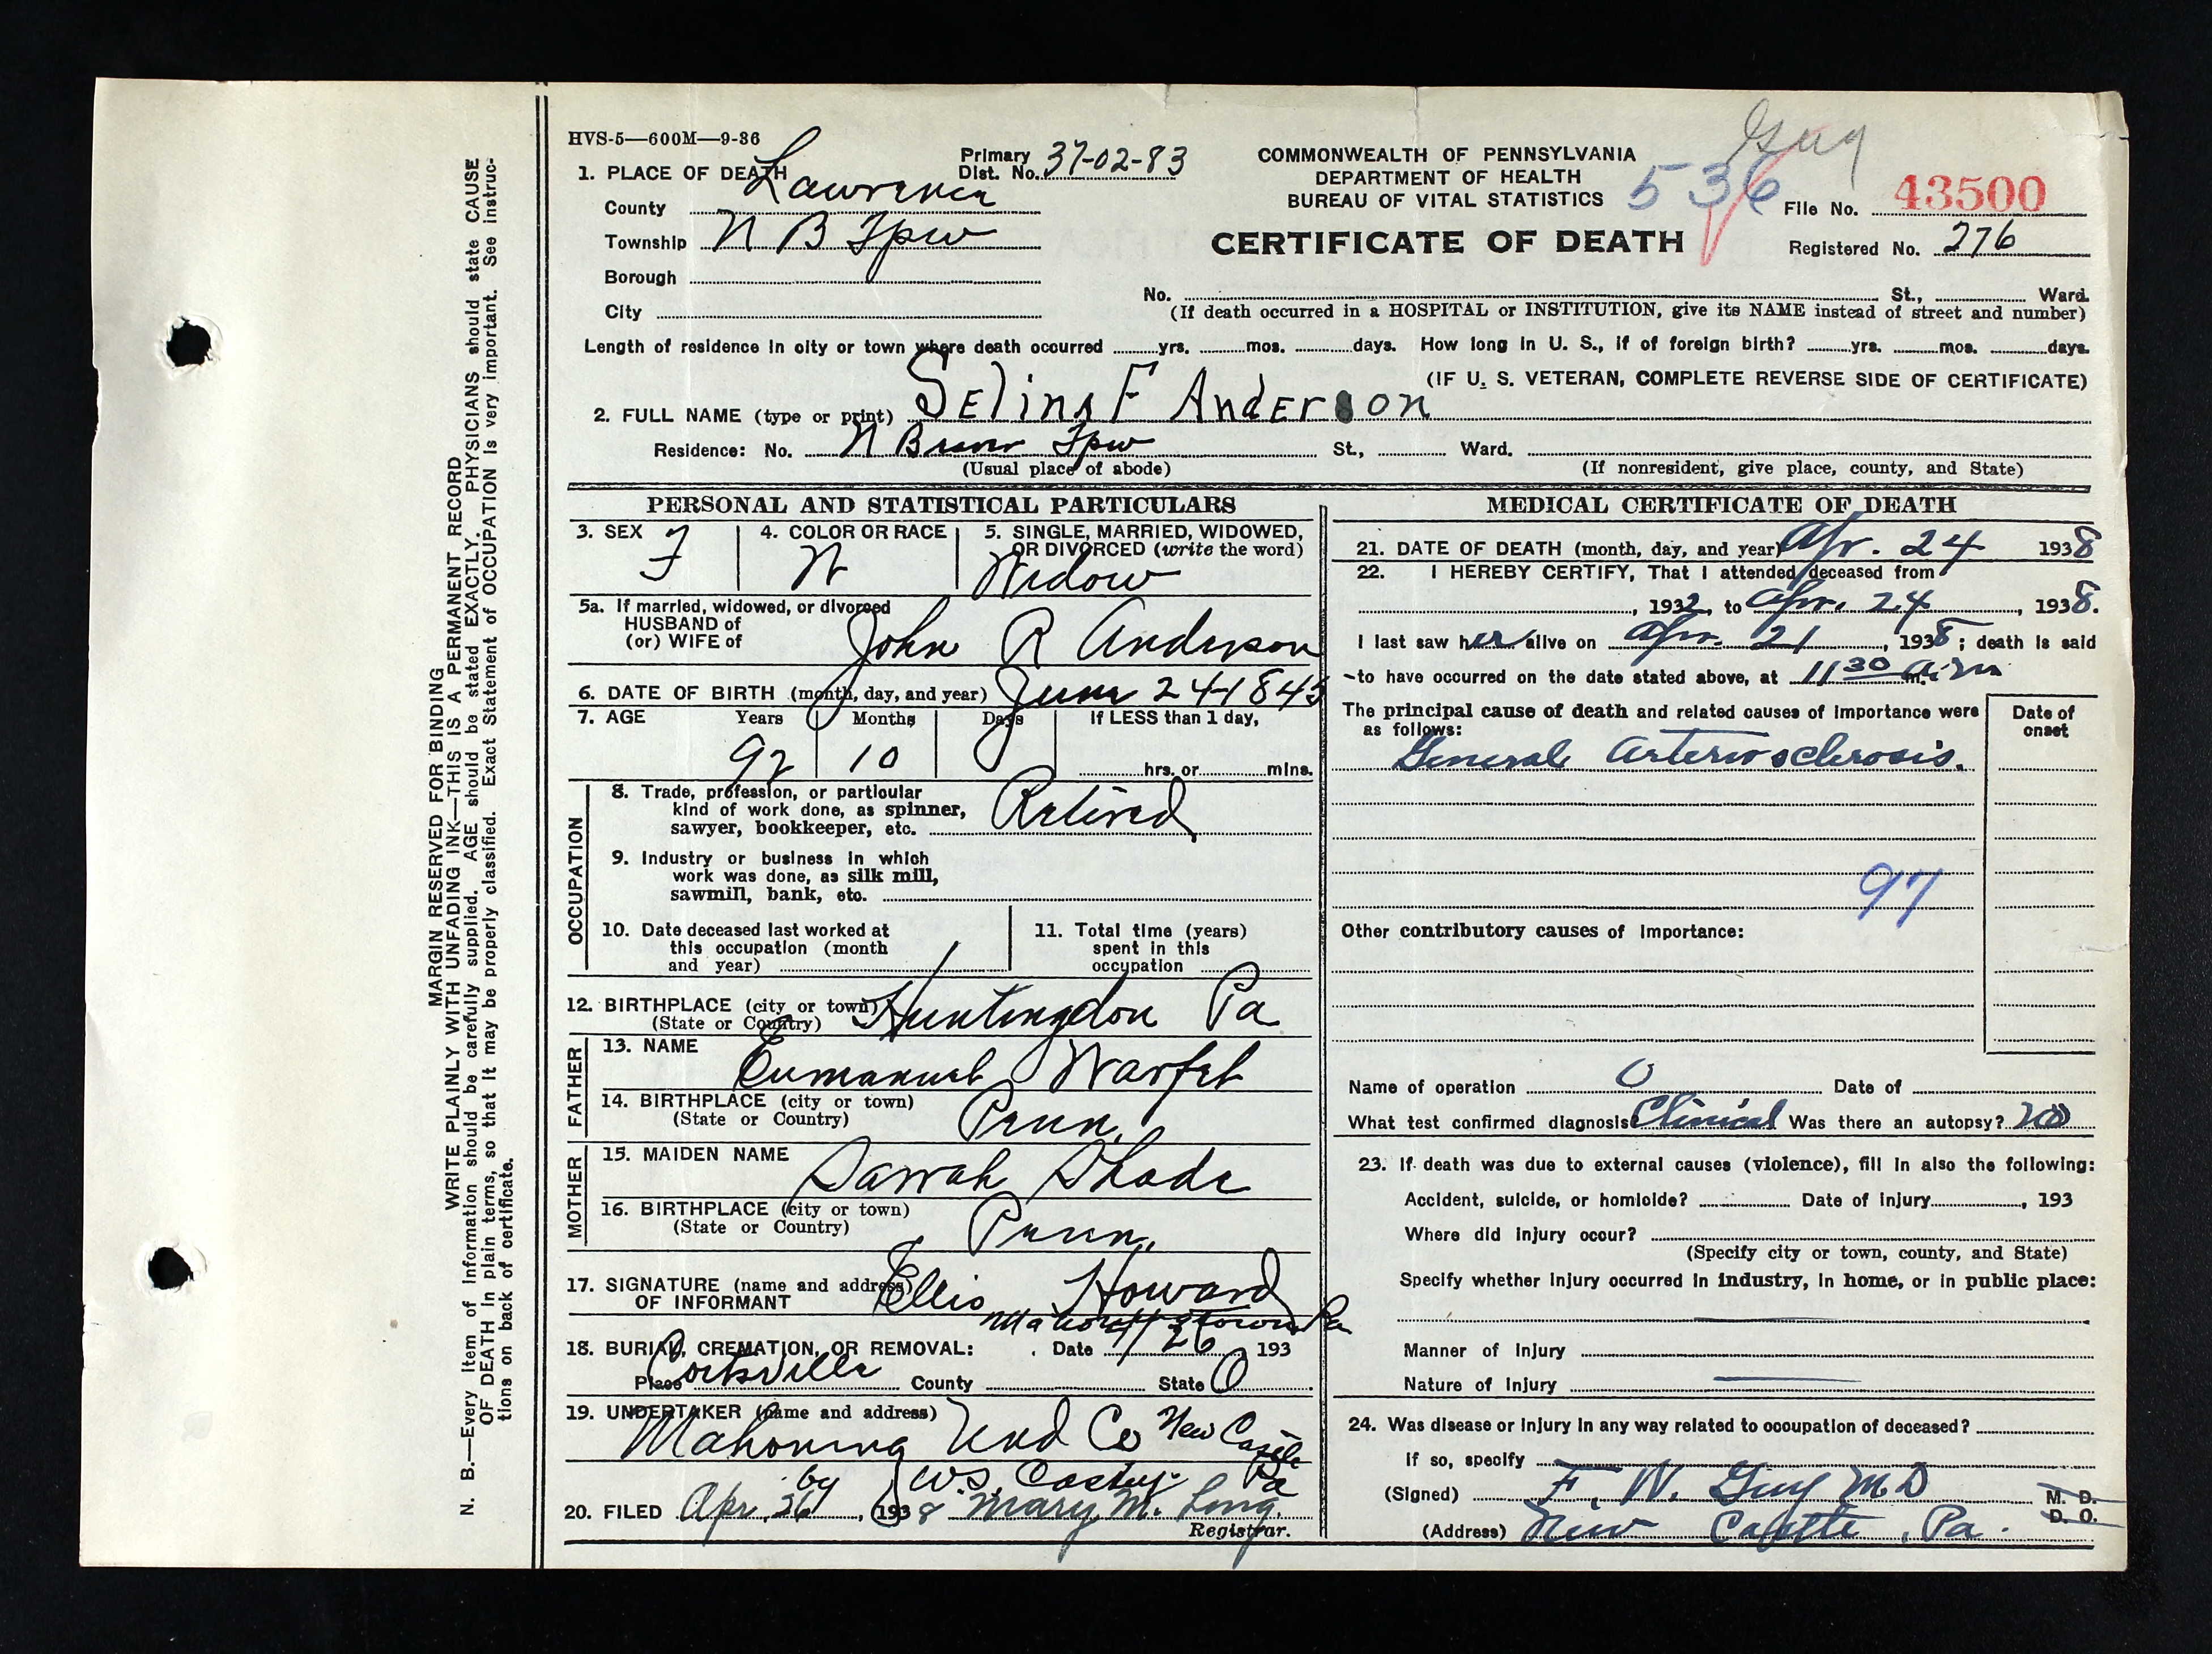 HVS-5—600M—9-36
1. PLACE OF DEATH
Primary Dist. No. 37-02-83
County Lawrence
Township N B Tpw
Borough
City
COMMONWEALTH OF PENNSYLVANIA
DEPARTMENT OF HEALTH
BUREAU OF VITAL STATISTICS
CERTIFICATE OF DEATH
Guy
536
File No. 43500
Registered No. 276
No. St., Ward.
(If death occurred in a HOSPITAL or INSTITUTION, give its NAME instead of street and number)
Length of residence in city or town where death occurred yrs. mos. days. How long in U. S., if of foreign birth? yrs. mos. days.
(IF U. S. VETERAN, COMPLETE REVERSE SIDE OF CERTIFICATE)
2. FULL NAME (type or print) SElinA F AndErson
Residence: No. N Beaver Tpw St., Ward.
(Usual place of abode) (If nonresident, give place, county, and State)
PERSONAL AND STATISTICAL PARTICULARS
3. SEX F
4. COLOR OR RACE W
5. SINGLE, MARRIED, WIDOWED, OR DIVORCED (write the word)
Widow
5a. If married, widowed, or divorced
HUSBAND of
(or) WIFE of John R Anderson
6. DATE OF BIRTH (month, day, and year) June 24-1845
7. AGE Years Months Days If LESS than 1 day,
92 10 0 hrs. or mins.
OCCUPATION
8. Trade, profession, or particular
kind of work done, as spinner,
sawyer, bookkeeper, etc. Retired
9. Industry or business in which
work was done, as silk mill,
sawmill, bank, etc.
10. Date deceased last worked at
this occupation (month
and year)
11. Total time (years)
spent in this
occupation
12. BIRTHPLACE (city or town) Huntingdon Pa
(State or Country)
FATHER
13. NAME Emmanuel Warfel
14. BIRTHPLACE (city or town)
(State or Country) Penn.
MOTHER
15. MAIDEN NAME Sarrah Shade
16. BIRTHPLACE (city or town)
(State or Country) Penn.
17. SIGNATURE (name and address)
OF INFORMANT Ellis Howard
Mahoningtown Pa
18. BURIAL, CREMATION, OR REMOVAL: Date 4/26 193
Place County State O
19. UNDERTAKER (name and address)
Mahoning Und Co New Castle Pa
by W.S.
20. FILED Apr. 26, 1938 Mary M. Long.
Registrar.
MEDICAL CERTIFICATE OF DEATH
21. DATE OF DEATH (month, day, and year) Apr. 24 1938
22. I HEREBY CERTIFY, That I attended deceased from
, 1932, to Apr. 24, 1938.
I last saw her alive on Apr. 21, 1938; death is said
to have occurred on the date stated above, at 11 30 a.m
The principal cause of death and related causes of importance were
as follows:
Date of onset
General Arteriosclerosis.
97
Other contributory causes of importance:
Name of operation 0 Date of
What test confirmed diagnosis? Clinical Was there an autopsy? no
23. If death was due to external causes (violence), fill in also the following:
Accident, suicide, or homicide? Date of injury , 193
Where did injury occur?
(Specify city or town, county, and State)
Specify whether injury occurred in industry, in home, or in public place:
Manner of injury
Nature of injury
24. Was disease or injury in any way related to occupation of deceased?
If so, specify
(Signed) F. W. Guy M.D M. D.
D. O.
(Address) New Castle, Pa.
MARGIN RESERVED FOR BINDING
WRITE PLAINLY WITH UNFADING INK—THIS IS A PERMANENT RECORD
N. B.—Every item of information should be carefully supplied. AGE should be stated EXACTLY. PHYSICIANS should state CAUSE
OF DEATH in plain terms, so that it may be properly classified. Exact Statement of OCCUPATION is very important. See instruc-
tions on back of certificate.